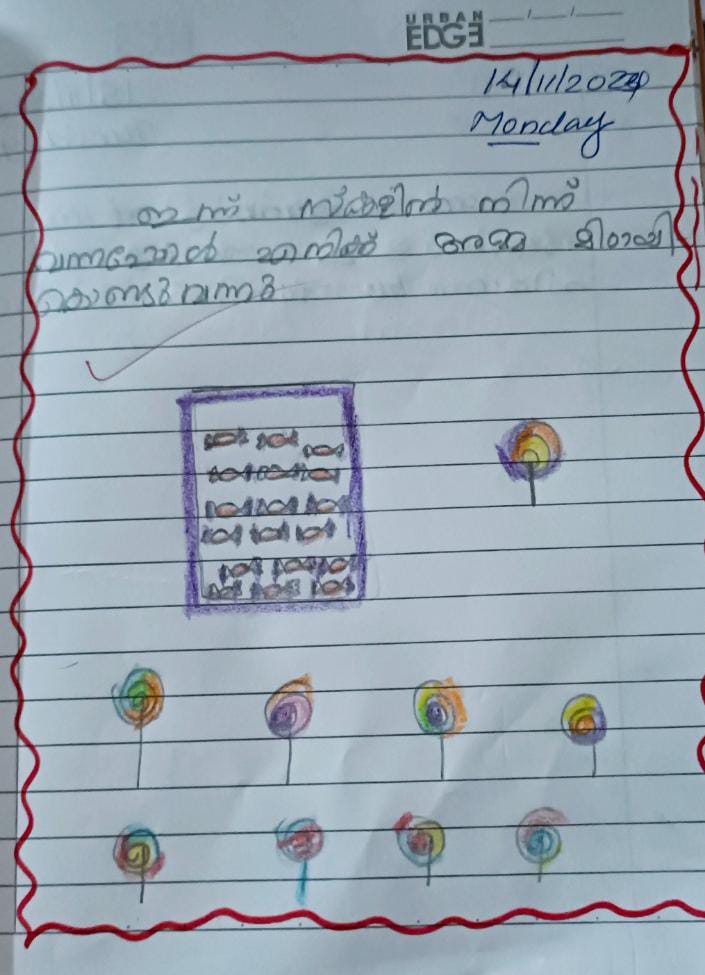 URBAN
EDGE
14/11/2024
Monday
ഇന്ന് സ്കൂളിൽ നിന്ന്
വന്നപ്പോൾ എനിക്ക് അമ്മ മിഠായി
കൊണ്ടുവന്നു